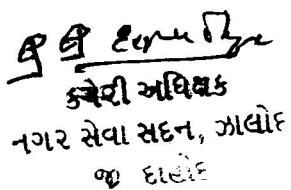 કચેરી અધિક્ષક
નગર સેવા સદન, ઝાલોદ
જી દાહોદ